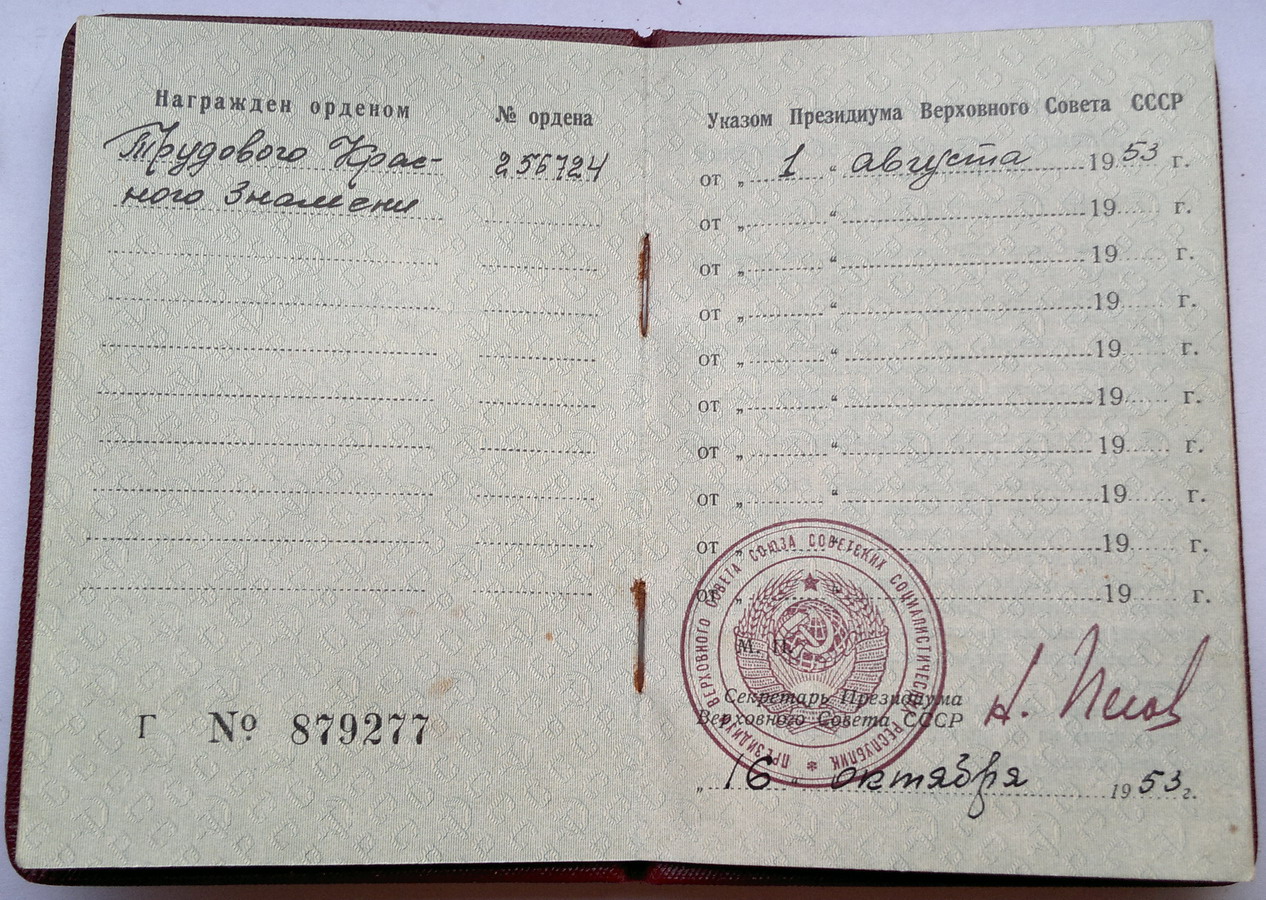 Награжден орденом
№ ордена
Трудового Крас-
ного Знамени
256724
Г № 879277
Указом Президиума Верховного Совета СССР
от „ 1 “ августа 1953 г.
от „ “ 19 г.
от „ “ 19 г.
от „ “ 19 г.
от „ “ 19 г.
от „ “ 19 г.
от „ “ 19 г.
от „ “ 19 г.
от „ “ 19 г.
от „ “ 19 г.
ПРЕЗИДИУМ ВЕРХОВНОГО СОВЕТА СОЮЗА СОВЕТСКИХ СОЦИАЛИСТИЧЕСКИХ РЕСПУБЛИК
М. П.
Секретарь Президиума
Верховного Совета СССР
Н. Пегов
„ 16 “ октября 1953 г.